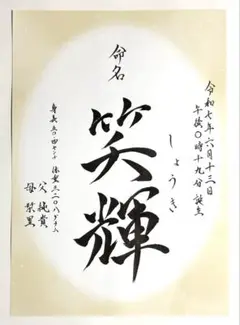 令和七年六月十三日
午後〇時十九分誕生
しょうき
命名
笑輝
身長 五〇・四センチ 体重 三二〇八グラム
父 純貴
母 栞里